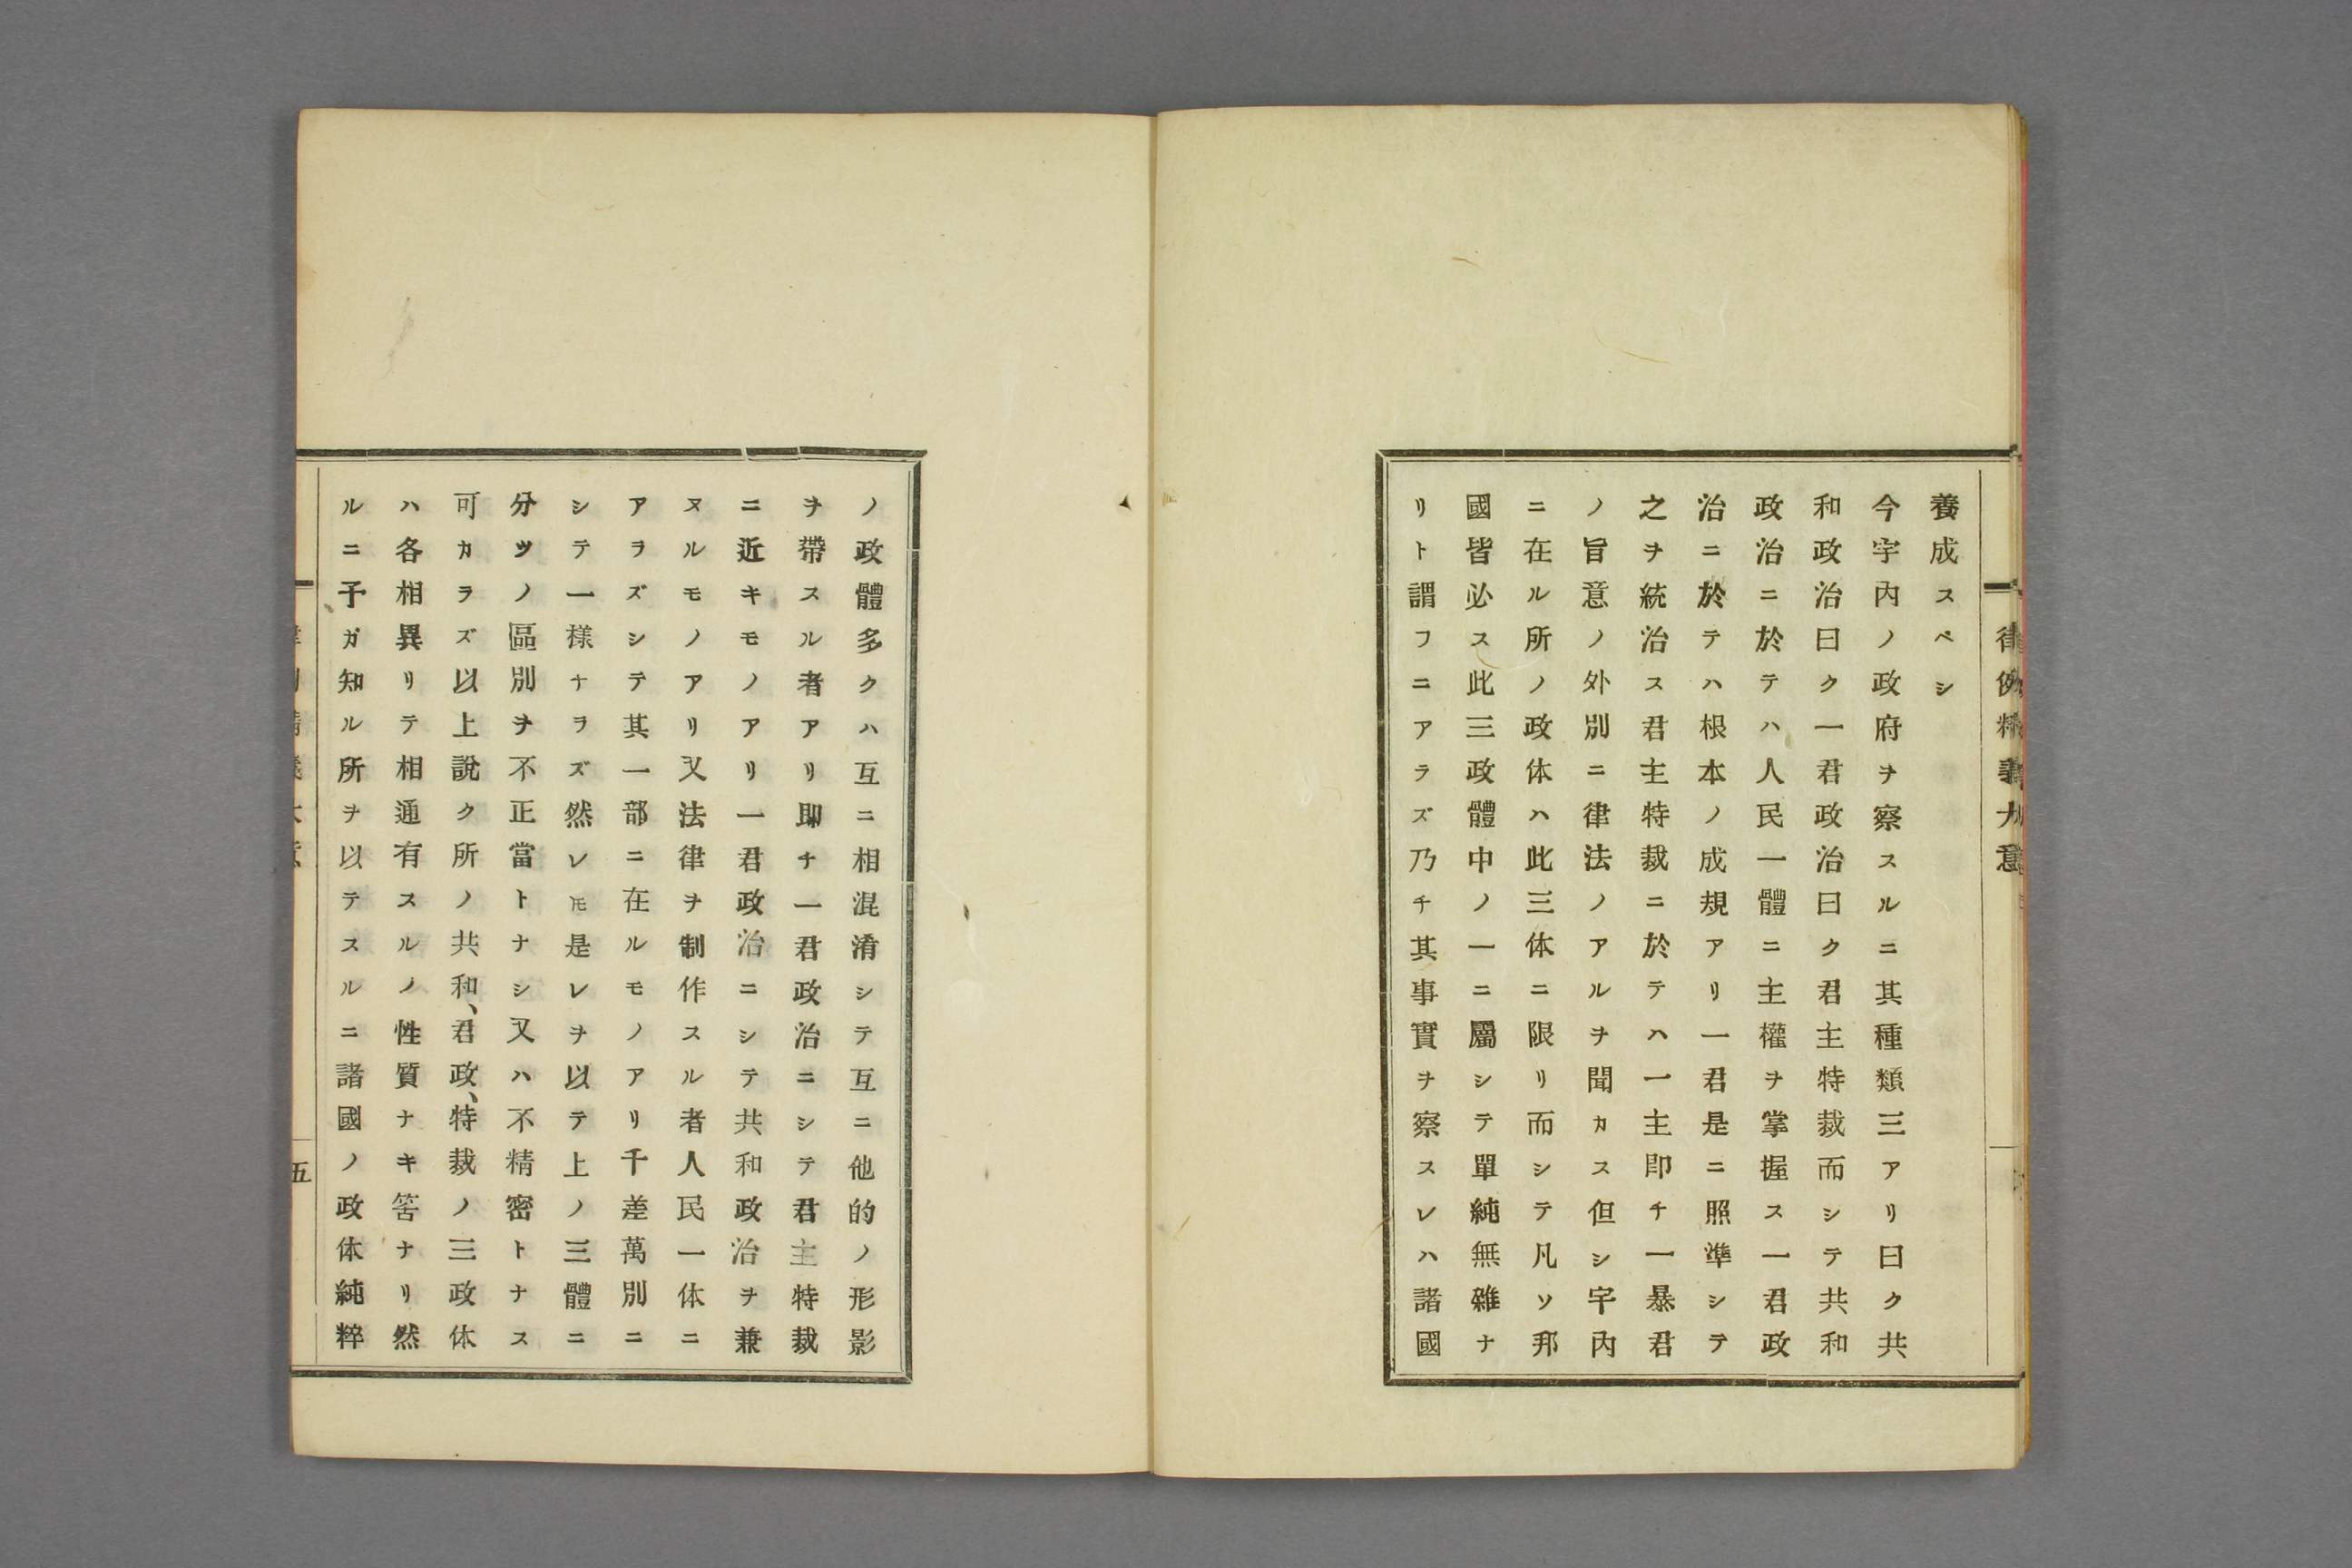 律例精義大意
養成スベシ
今宇內ノ政府ヲ察スルニ其種類三アリ曰ク共
和政治曰ク一君政治曰ク君主特裁而シテ共和
政治ニ於テハ人民一體ニ主權ヲ掌握ス一君政
治ニ於テハ根本ノ成規アリ一君是ニ照準シテ
之ヲ統治ス君主特裁ニ於テハ一主卽チ一暴君
ノ旨意ノ外別ニ律法ノアルヲ聞カス但シ宇內
ニ在ル所ノ政体ハ此三体ニ限リ而シテ凡ソ邦
國皆必ス此三政體中ノ一ニ屬シテ單純無雜ナ
リト謂フニアラズ乃チ其事實ヲ察スレハ諸國
ノ政體多クハ互ニ相混淆シテ互ニ他的ノ形影
ヲ帶スル者アリ卽チ一君政治ニシテ君主特裁
ニ近キモノアリ一君政治ニシテ共和政治ヲ兼
ヌルモノアリ又法律ヲ制作スル者人民一体ニ
アラズシテ其一部ニ在ルモノアリ千差萬別ニ
シテ一樣ナラズ然レ𪜈是レヲ以テ上ノ三體ニ
分ツノ區別ヲ不正當トナシ又ハ不精密トナス
可カラズ以上說ク所ノ共和、君政、特裁ノ三政体
ハ各相異リテ相通有スルノ性質ナキ筈ナリ然
ルニ予ガ知ル所ヲ以テスルニ諸國ノ政体純粹
五